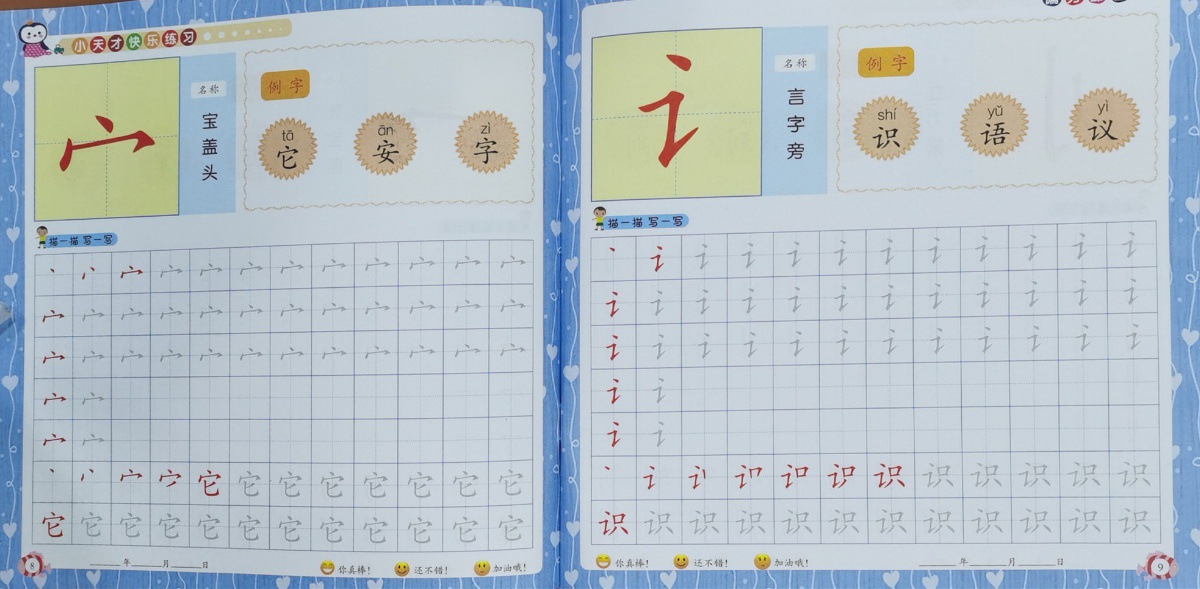 小天才快乐练习
宀
名称
宝盖头
例字
tā ān zì
它 安 字
描一描 写一写
丶 丷 宀 宀 宀 宀 宀 宀 宀 宀 宀 宀
宀 宀 宀 宀 宀 宀 宀 宀 宀 宀 宀 宀
宀 宀 宀 宀 宀 宀 宀 宀 宀 宀 宀 宀
宀 宀
宀 宀
丶 丷 宀 它 它 它 它 它 它 它 它
它 它 它 它 它 它 它 它 它 它 它 它
8
年 月 日
你真棒! 还不错! 加油哦!
讠
名称
言字旁
例字
shí yǔ yì
识 语 议
描一描 写一写
丶 讠 讠 讠 讠 讠 讠 讠 讠 讠 讠 讠
讠 讠 讠 讠 讠 讠 讠 讠 讠 讠 讠 讠
讠 讠 讠 讠 讠 讠 讠 讠 讠 讠 讠 讠
讠 讠
讠 讠
丶 讠 识 识 识 识 识 识
识 识 识 识 识 识 识 识 识 识 识 识
你真棒! 还不错! 加油哦!
年 月 日
9